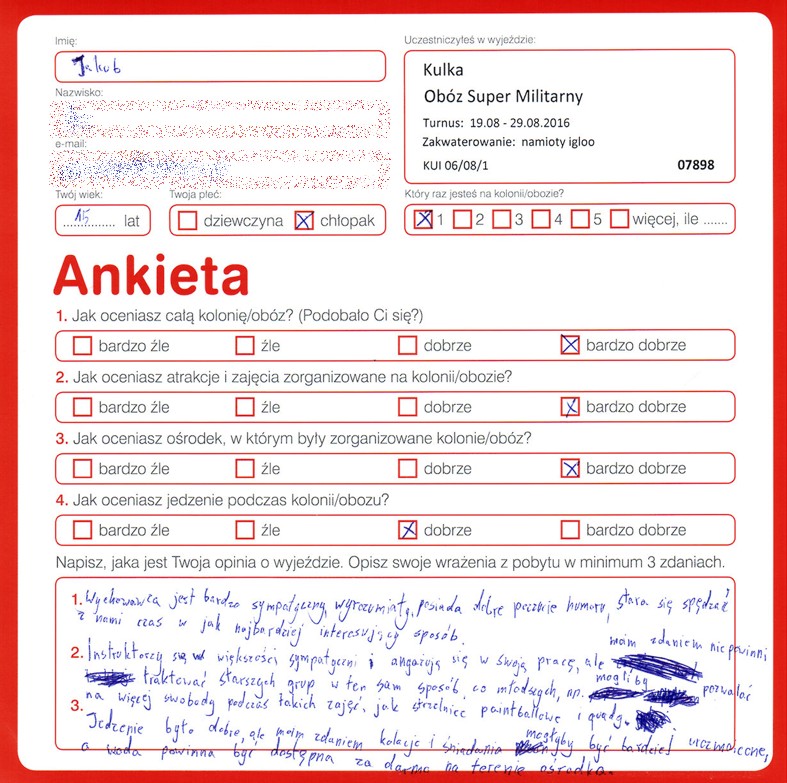 Imię:
Jakub
Uczestniczyłeś w wyjeździe:
Kulka
Obóz Super Militarny
Turnus: 19.08 - 29.08.2016
Zakwaterowanie: namioty igloo
KUI 06/08/1 07898
Nazwisko:
e-mail:
Twój wiek:
15 lat
Twoja płeć:
dziewczyna chłopak
Który raz jesteś na kolonii/obozie?
1 2 3 4 5 więcej, ile .......
Ankieta
1. Jak oceniasz całą kolonię/obóz? (Podobało Ci się?)
bardzo źle źle dobrze bardzo dobrze
2. Jak oceniasz atrakcje i zajęcia zorganizowane na kolonii/obozie?
bardzo źle źle dobrze bardzo dobrze
3. Jak oceniasz ośrodek, w którym były zorganizowane kolonie/obóz?
bardzo źle źle dobrze bardzo dobrze
4. Jak oceniasz jedzenie podczas kolonii/obozu?
bardzo źle źle dobrze bardzo dobrze
Napisz, jaka jest Twoja opinia o wyjeździe. Opisz swoje wrażenia z pobytu w minimum 3 zdaniach.
1. Wychowawca jest bardzo sympatyczny, wyrozumiały, posiada dobre poczucie humoru, stara się spędzać
z nami czas w jak najbardziej interesujący sposób.
2. Instruktorzy są w większości sympatyczni i angażują się w swoją pracę, ale moim zdaniem nie powinni
traktować starszych grup w ten sam sposób, co młodszych, np. mogliby pozwalać
na więcej swobody podczas takich zajęć, jak strzelnice paintballowe i quady.
3. Jedzenie było dobre, ale moim zdaniem kolacje i śniadania mogłyby być bardziej urozmaicone,
a woda powinna być dostępna za darmo na terenie ośrodka.